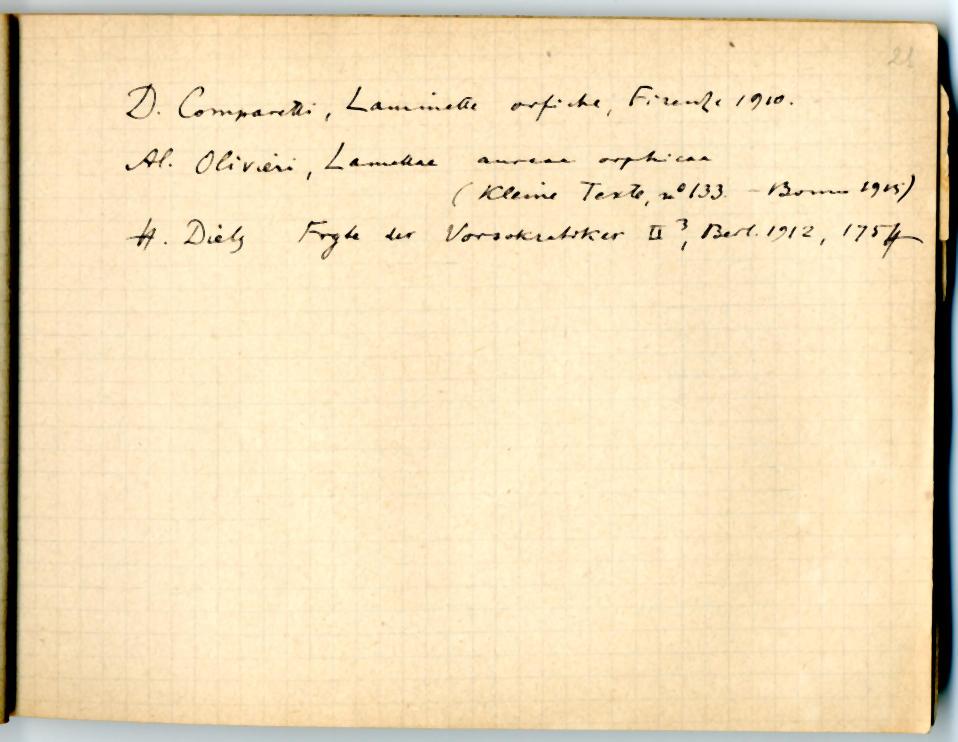 21
D. Comparetti, Laminette orfiche, Firenze 1910.
Al. Olivieri, Lamellae aureae orphicae
(Kleine Texte, nº 133 – Bonn 1915)
H. Diels Frgte der Vorsokratiker II³, Berl. 1912, 175 ff